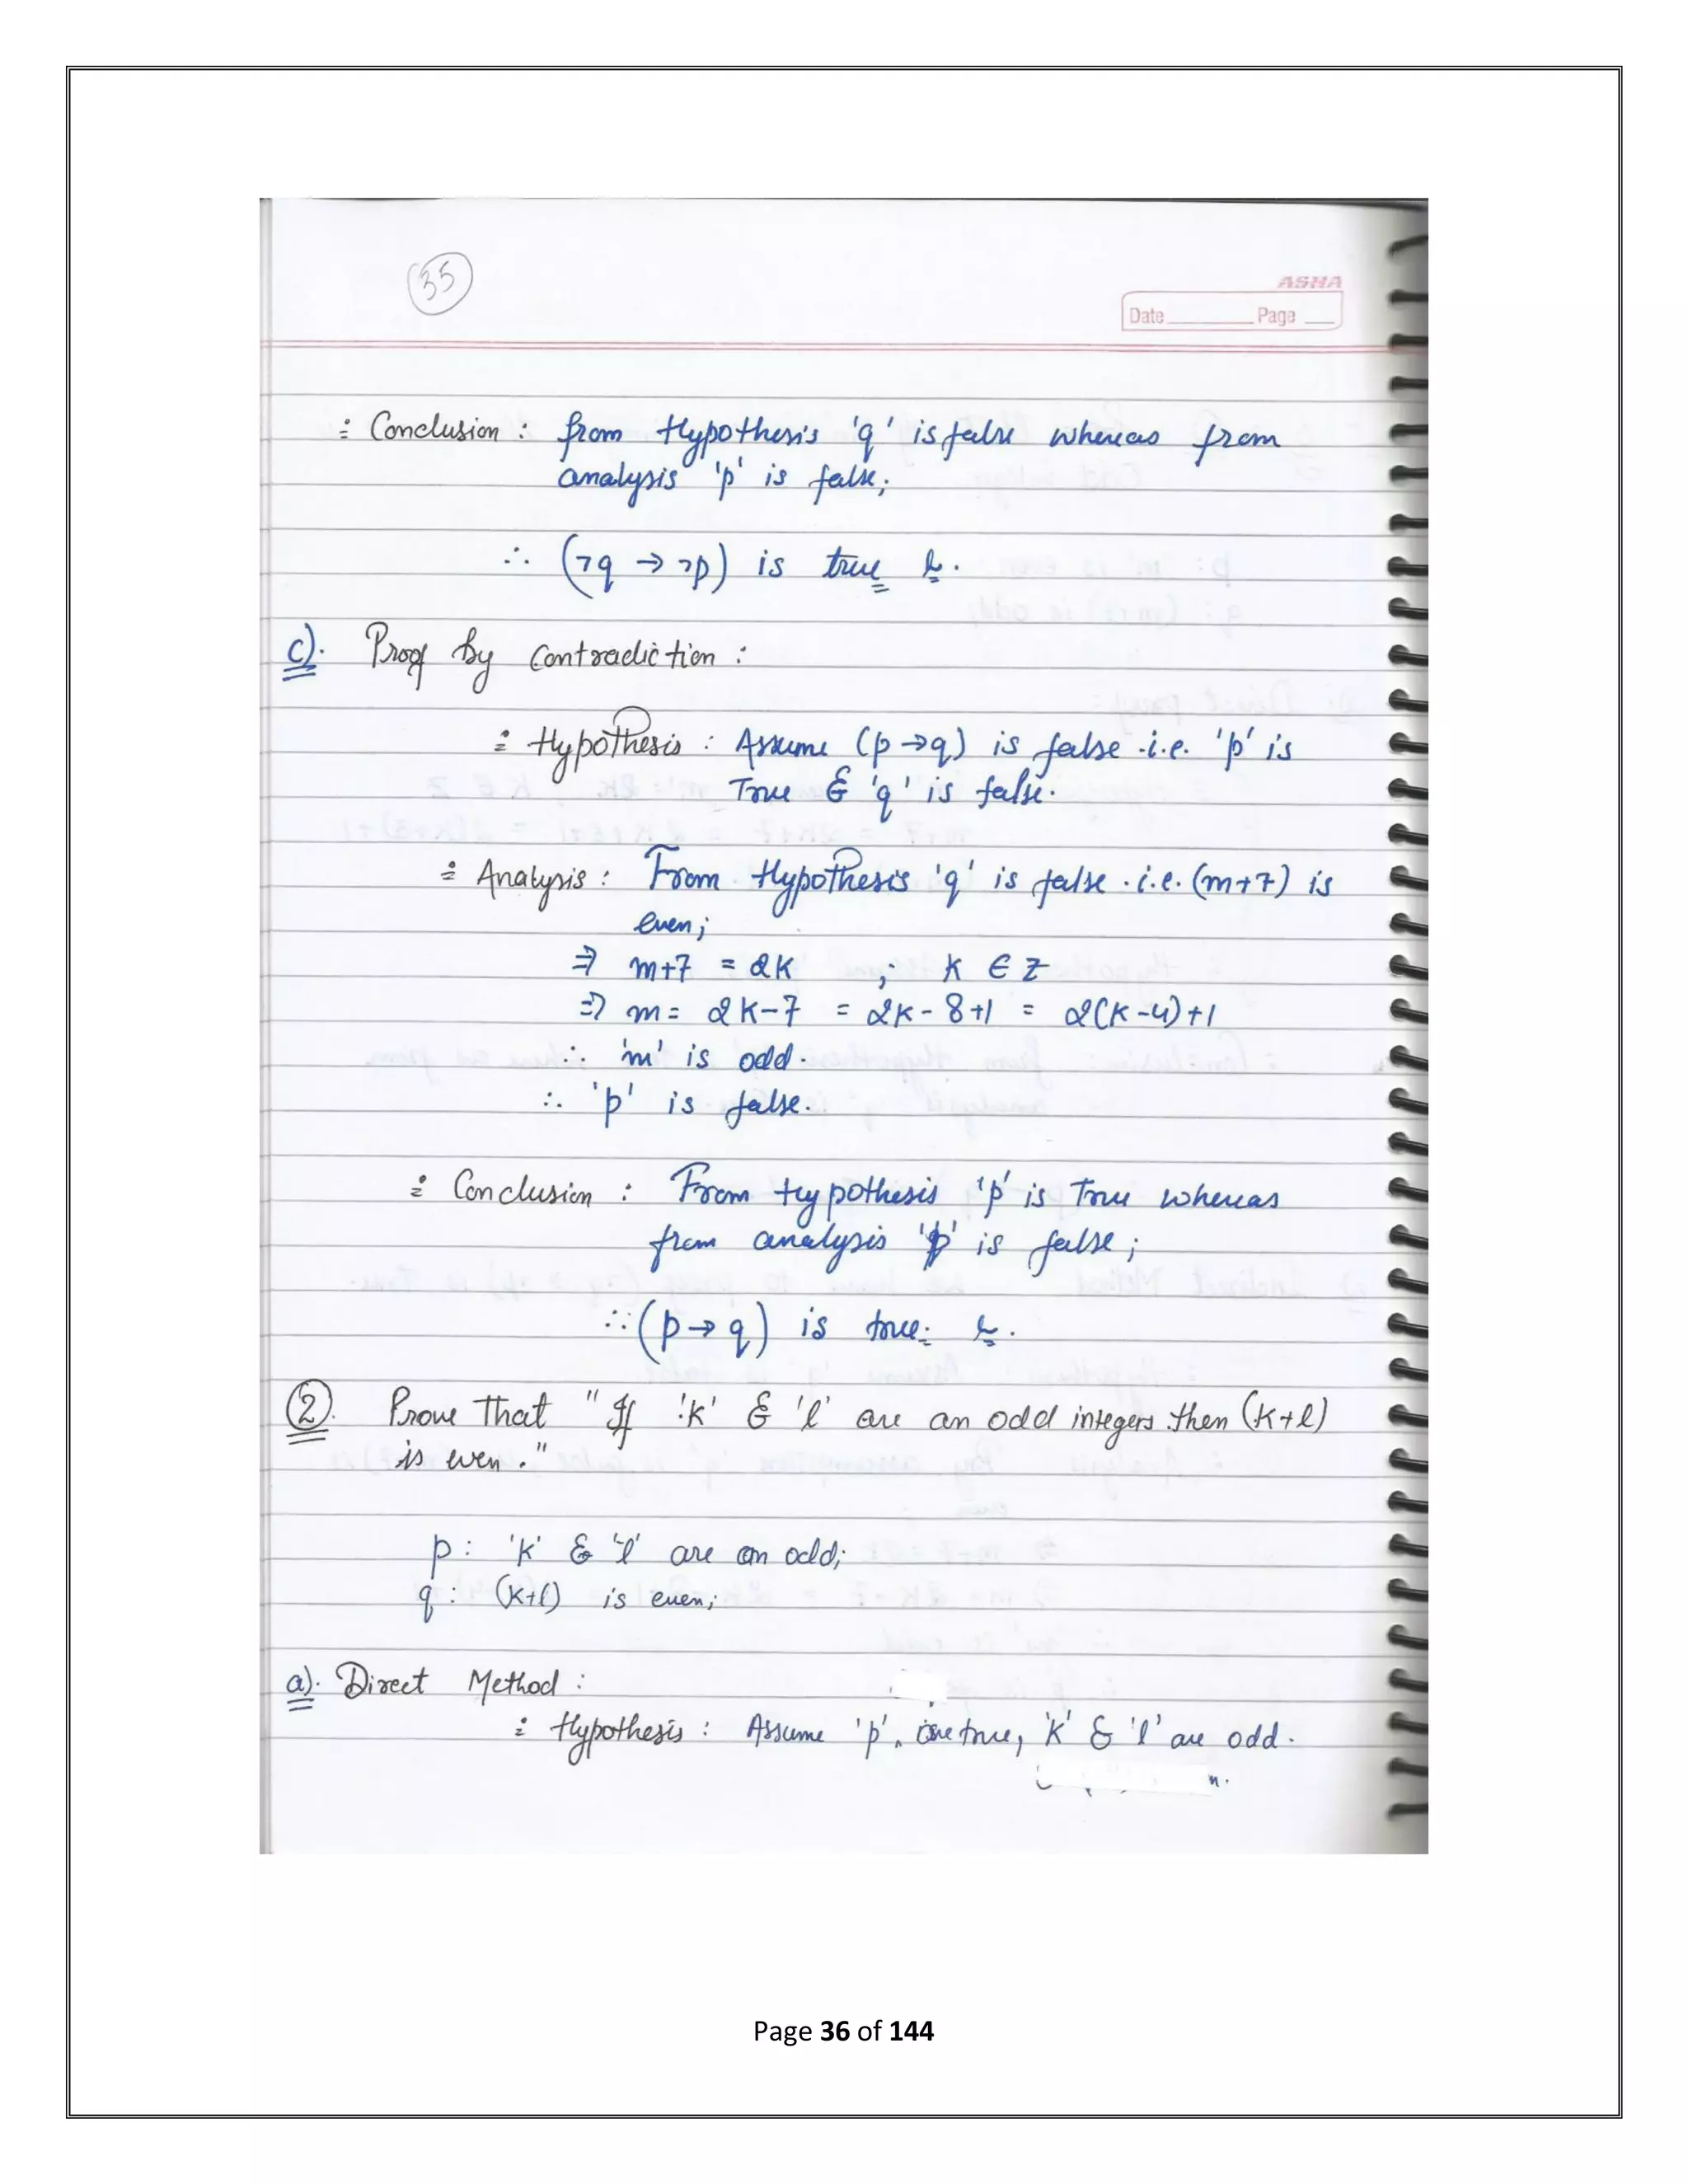 35
ASHA
Date Page
Conclusion : from Hypothesis 'q' is false whereas from
analysis 'p' is false;
∴ (¬q → ¬p) is true
c). Proof by Contradiction :
Hypothesis : Assume (p→q) is false .i.e. 'p' is
True & 'q' is false.
Analysis : From Hypothesis 'q' is false .i.e. (m+7) is
even;
⇒ m+7 = 2K ; K ∈ Z
⇒ m = 2K-7 = 2K-8+1 = 2(K-4)+1
∴ 'm' is odd.
∴ 'p' is false.
Conclusion : From Hypothesis 'p' is True whereas
from analysis 'p' is false ;
∴ (p→q) is true.
2. Prove That "If 'K' & 'l' are an odd integers then (K+l)
is even."
p: 'K' & 'l' are an odd;
q: (K+l) is even;
a). Direct Method :
Hypothesis : Assume 'p' true, 'K' & 'l' are odd.
Page 36 of 144